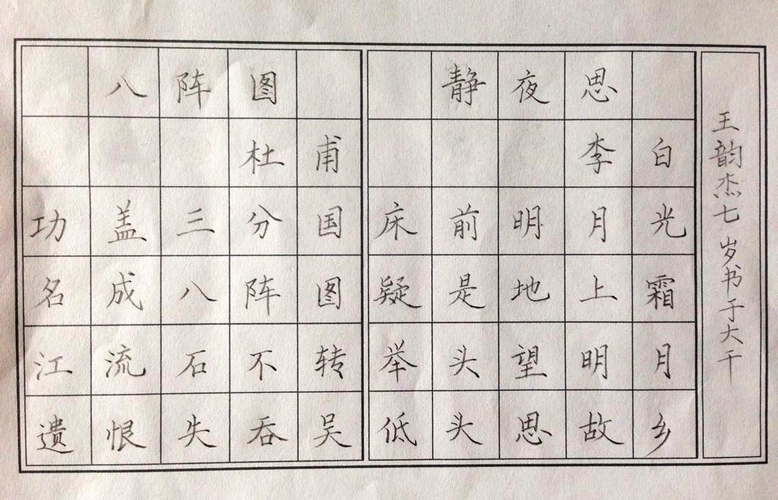 八阵图
杜甫
功盖三分国
名成八阵图
江流石不转
遗恨失吞吴
静夜思
李白
床前明月光
疑是地上霜
举头望明月
低头思故乡
王韵杰七岁书于大千